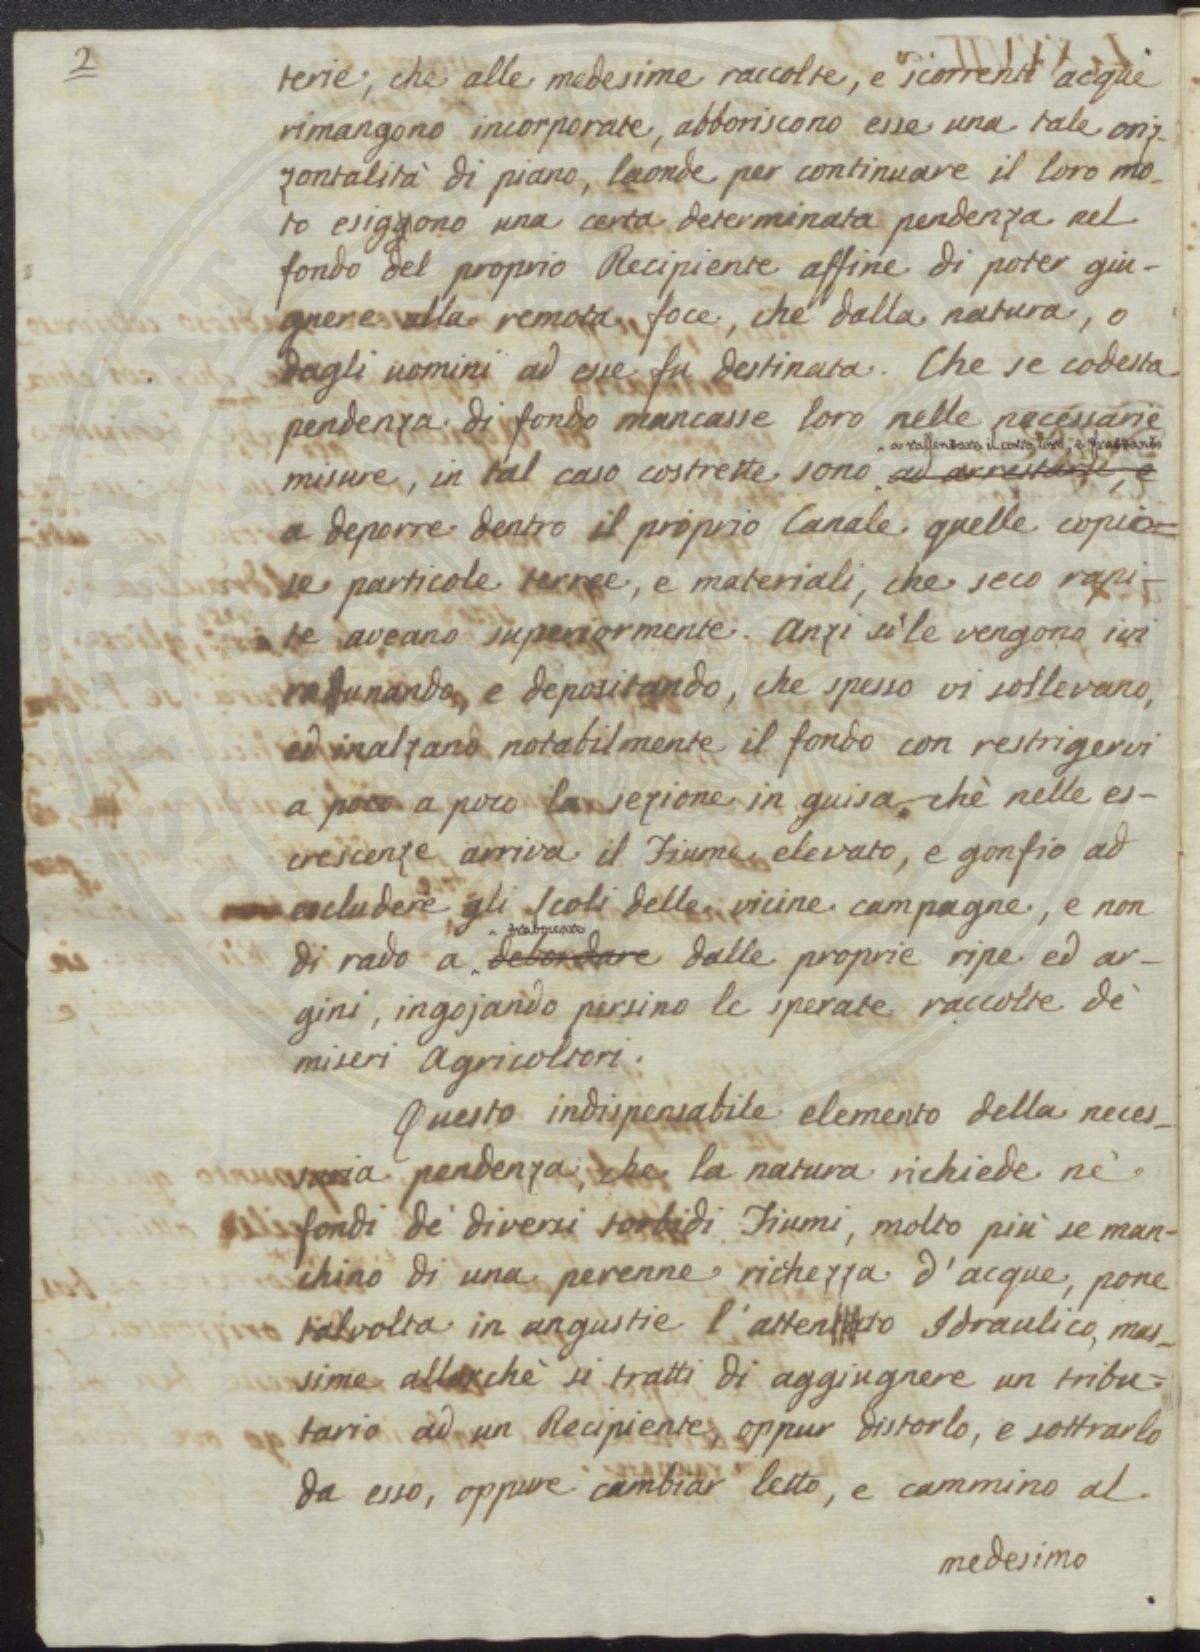 2
terie, che alle medesime raccolte, e scorrenti acque
rimangono incorporate, abboriscono esse una tale oriz-
zontalità di piano, laonde per continuare il loro mo-
to esiggono una certa determinata pendenza nel
fondo del proprio Recipiente affine di poter giu-
gnere alla remota foce, che dalla natura, o
dagli uomini ad esse fu destinata. Che se codesta
pendenza di fondo mancasse loro nelle necessarie
a rallentare il corso loro, e
misure, in tal caso costrette sono ad arrestarsi, e
a deporre dentro il proprio Canale quelle copio=
se particole terree, e materiali, che seco rapi-
te aveano superiormente. Anzi sì le vengono ivi
radunando, e depositando, che spesso vi sollevano,
ed inalzano notabilmente il fondo con restrigervi
a poco a poco la sezione in guisa, chè nelle es-
crescenze arriva il Fiume elevato, e gonfio ad
escludere gli Scoli delle vicine campagne, e non
di rado a debordare dalle proprie ripe ed ar-
gini, ingojando persino le sperate raccolte de'
miseri Agricoltori.
Questo indispensabile elemento della neces-
saria pendenza, che la natura richiede ne'
fondi de' diversi torbidi Fiumi, molto più se man-
chino di una perenne richezza d'acque, pone
talvolta in angustie l'attento Idraulico, mas-
sime allorchè si tratti di aggiugnere un tribu=
tario ad un Recipiente, oppur distorlo, e sottrarlo
da esso, oppure cambiar letto, e cammino al
medesimo